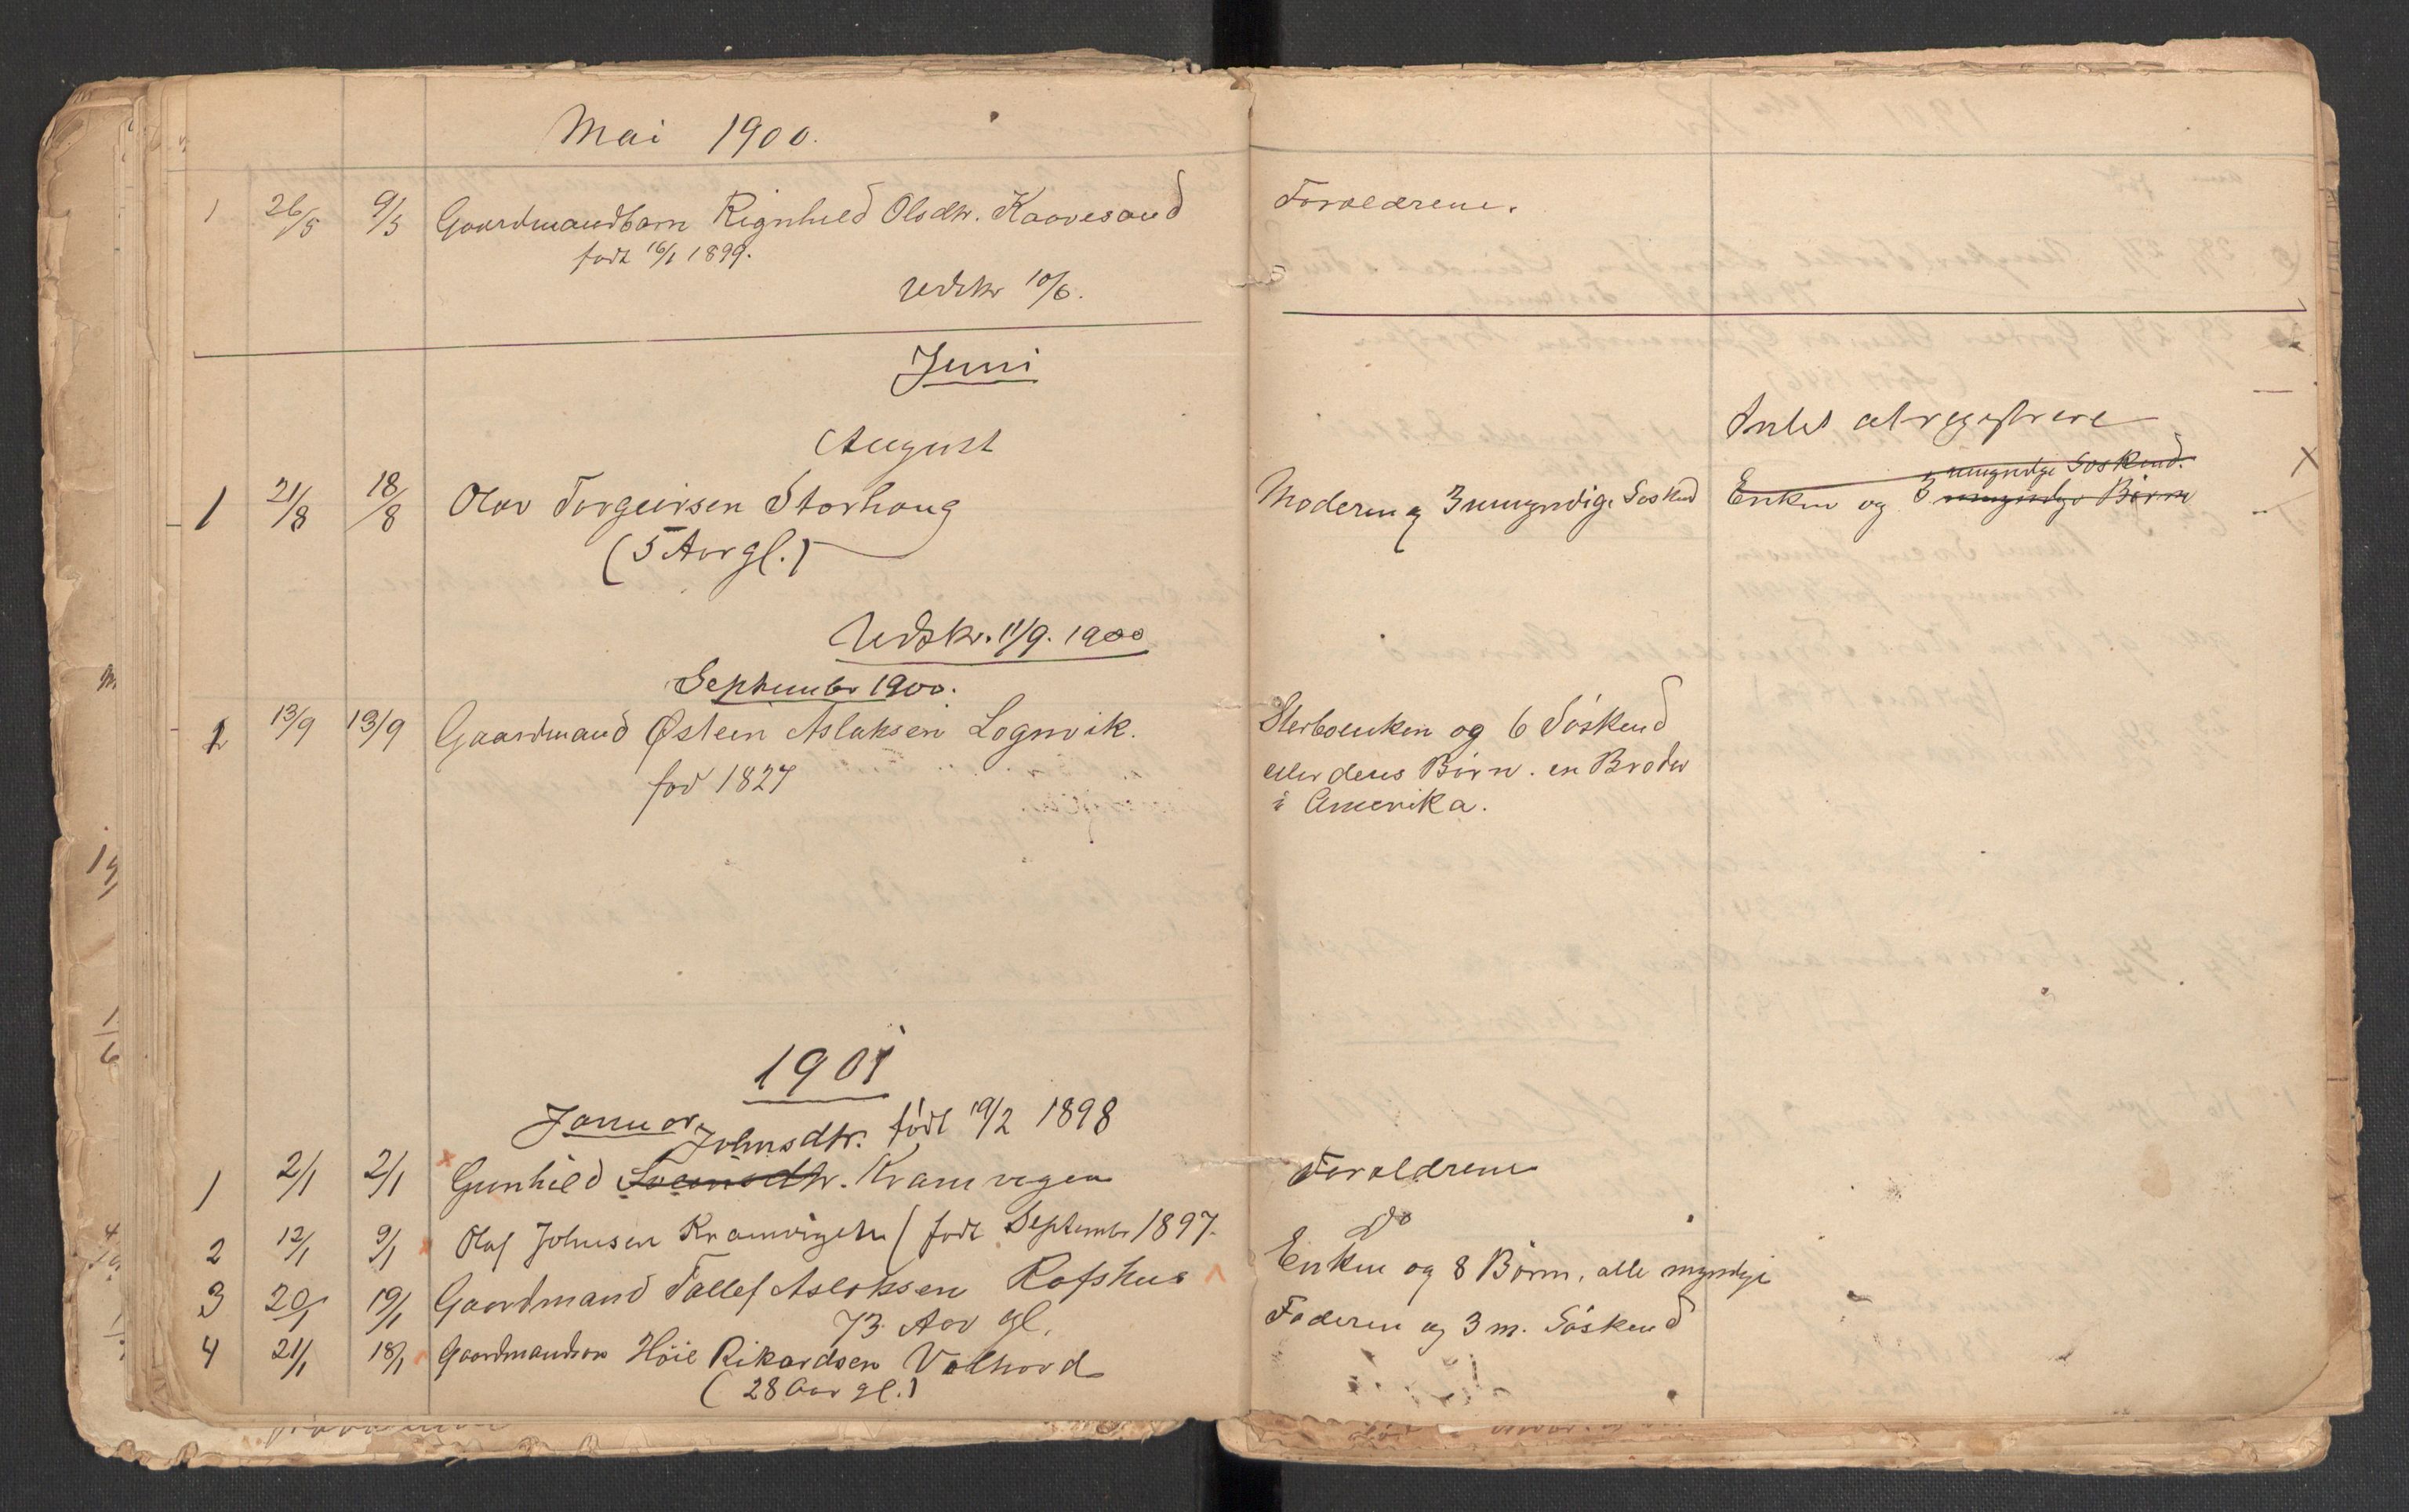 Mai 1900.
1 26/5 9/5 Gaardmandbarn Rignhild Olsdtr. Kaavesand Foraldrene.
født 16/1 1899.
Udskr 10/6.
Juni
August
Intet at registrere
umyndige Søskend.
1 21/8 18/8 Olav Torgeirsen Storhaug Moderen og 3 umyndige Søskend Enken og 3 umyndige Børn
(5 Aar gl.)
Udskr. 11/9. 1900
September 1900.
1 13/9 13/9 Gaardmand Østein Aslaksen Lognvik. Sterboenken og 6 Søskend
fød 1827 eller deres Børn. en Broder
i Amerika.
1901
Januar
Johnsdtr. født 19/2 1898
1 2/1 2/1 Gunhild Sveinsdtr. Kramvigen Foraldrene
2 12/1 9/1 Olaf Johnsen Kramvigen ( født September 1897. Do
3 20/1 19/1 Gaardmand Tallef Aslaksen Rofshus Enken og 8 Børn, alle myndige
73 Aar gl.
4 21/1 18/1 Gaardmandsøn Høie Rikardsen Valhovd Faderen og 3 m. Søskend
(28 Aar gl.)